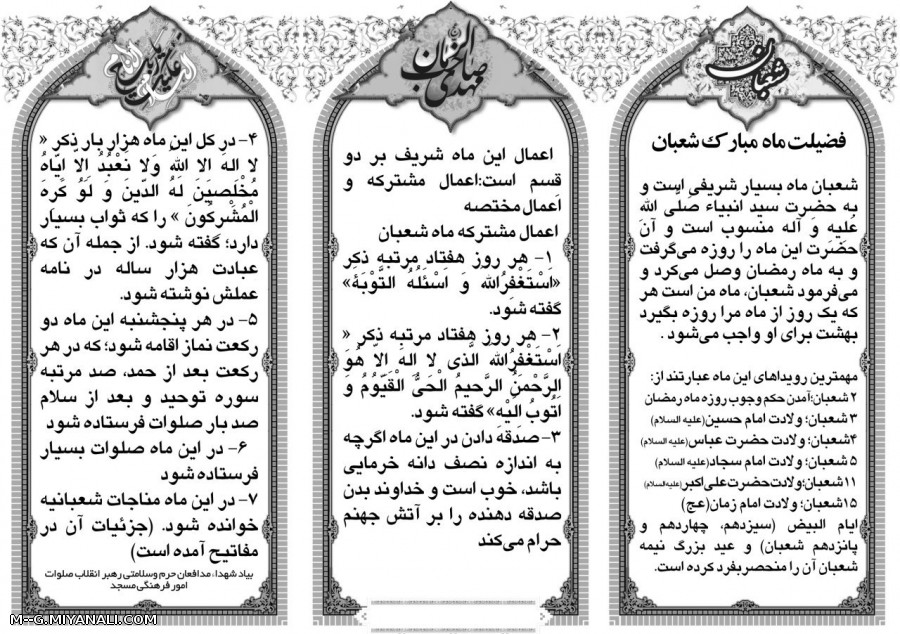 شعبان
فضیلت ماه مبارک شعبان
شعبان ماه بسیار شریفی است و
به حضرت سید انبیاء صَلَّی الله
عَلیهِ وَ آله منسوب است و آن
حضرت این ماه را روزه می‌گرفت
و به ماه رمضان وصل می‌کرد و
می‌فرمود شعبان، ماه من است هر
که یک روز از ماه مرا روزه بگیرد
بهشت برای او واجب می‌شود.
مهمترین رویداهای این ماه عبارتند از:
۲ شعبان؛آمدن حکم وجوب روزه ماه رمضان
۳ شعبان؛ ولادت امام حسین(علیه السلام)
۴شعبان؛ ولادت حضرت عباس(علیه السلام)
۵ شعبان؛ ولادت امام سجاد(علیه السلام)
۱۱شعبان؛ولادت‌حضرت‌علی‌اکبر(علیه‌السلام)
۱۵شعبان؛ ولادت امام زمان(عج)
ایام البیض (سیزدهم، چهاردهم و
پانزدهم شعبان) و عید بزرگ نیمه
شعبان آن را منحصربفرد کرده است.
مهدی صاحب الزمان
اعمال این ماه شریف بر دو
قسم است:اعمال مشترکه و
اعمال مختصه
اعمال مشترکه ماه شعبان
۱- هر روز هفتاد مرتبه ذکر
«اَستَغفِرُالله وَ اَسئَلُهُ التَّوبَةَ»
گفته شود.
۲- هر روز هفتاد مرتبه ذکر «
اَستَغفِرُالله الَّذی لا الهَ الا هُوَ
الرَّحمنُ الرَّحیمُ الحَیُّ القَیّومُ وَ
اَتُوبُ اِلَیه» گفته شود.
۳-صدقه دادن در این ماه اگرچه
به اندازه نصف دانه خرمایی
باشد، خوب است و خداوند بدن
صدقه دهنده را بر آتش جهنم
حرام می‌کند
۴- در کل این ماه هزار بار ذکر «
لا الهَ الا اللهُ وَلا نَعبُدُ اِلا ایّاهُ
مُخلِصینَ لَهُ الدّینَ وَ لَو کَرِهَ
المُشرِکُونَ » را که ثواب بسیار
دارد؛ گفته شود. از جمله آن که
عبادت هزار ساله در نامه
عملش نوشته شود.
۵- در هر پنجشنبه این ماه دو
رکعت نماز اقامه شود؛ که در هر
رکعت بعد از حمد، صد مرتبه
سوره توحید و بعد از سلام
صد بار صلوات فرستاده شود
۶- در این ماه صلوات بسیار
فرستاده شود
۷- در این ماه مناجات شعبانیه
خوانده شود. (جزئیات آن در
مفاتیح آمده است)
بیاد شهداء مدافعان حرم وسلامتی رهبر انقلاب صلوات
امور فرهنگی مسجد
M--G.MIYANALI.COM